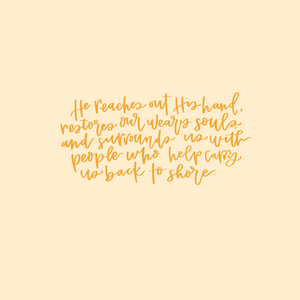 He reaches out His hand,
restores our weary souls,
and surrounds us with
people who help carry
us back to shore.